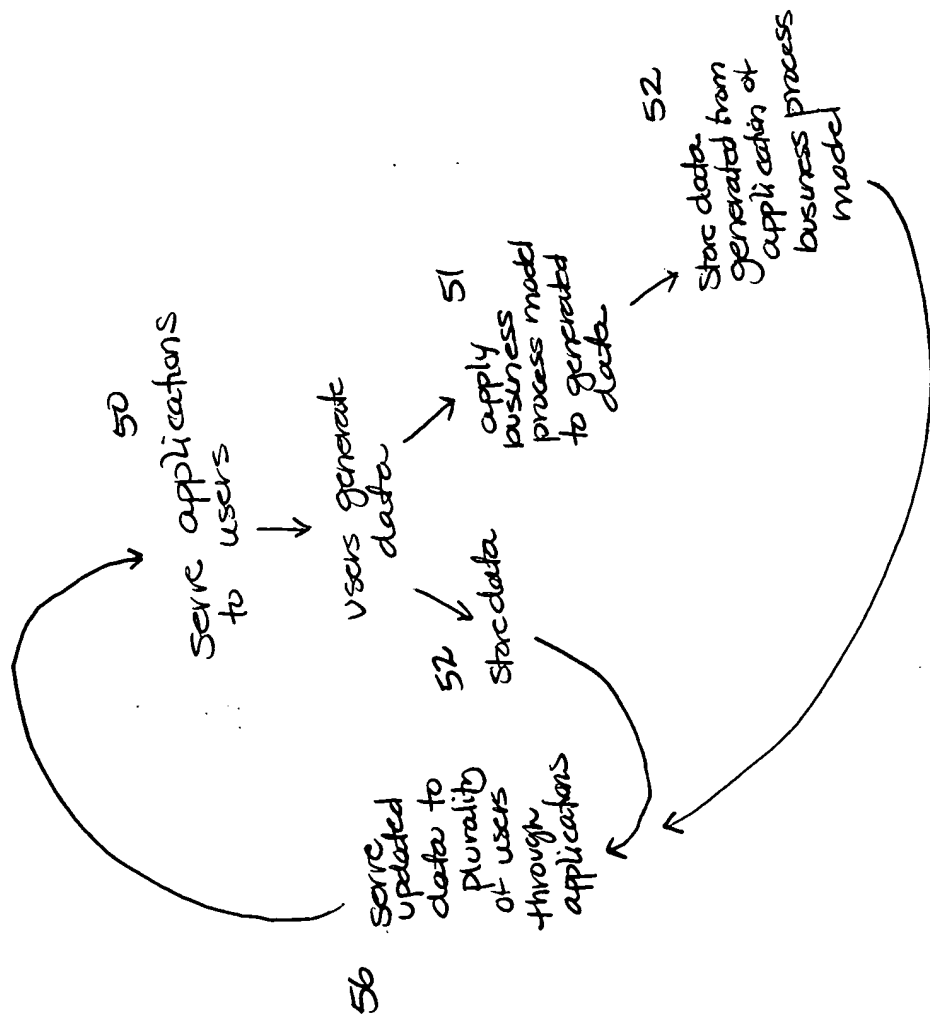 50
Serve applications
to users
users generate
data
51
apply
business
process model
to generated
data
52
Store data
52
Store data
generated from
application of
business process
model
56
Serve
updated
data to
plurality
of users
through
applications